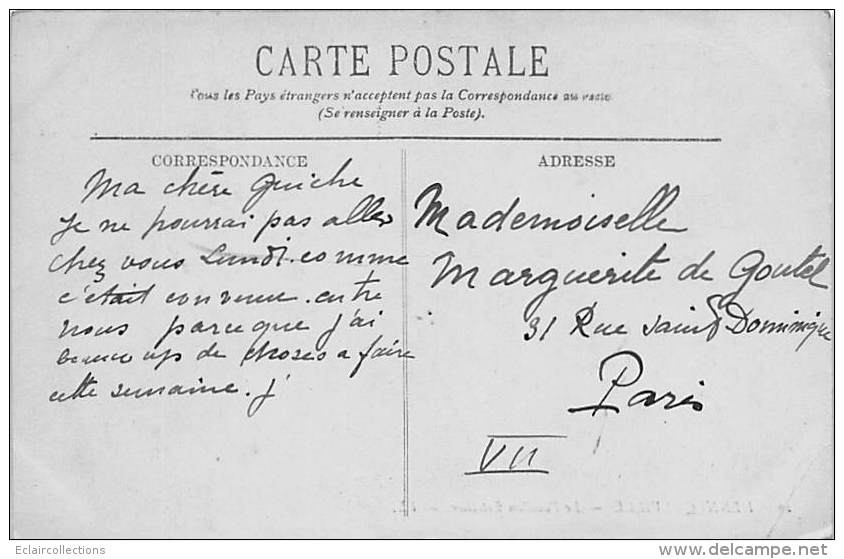 CARTE POSTALE
Tous les Pays étrangers n'acceptent pas la Correspondance au recto
(Se renseigner à la Poste).
CORRESPONDANCE
Ma chère Guiche
je ne pourrai pas aller
chez vous Lundi. comme
c'était convenu. entre
nous parceque j'ai
beaucoups de choses a faire
cette semaine. j'
ADRESSE
Mademoiselle
Marguerite de Goutel
31 Rue Saint Dominique
Paris
VII
Eclaircollections
delcampe.net